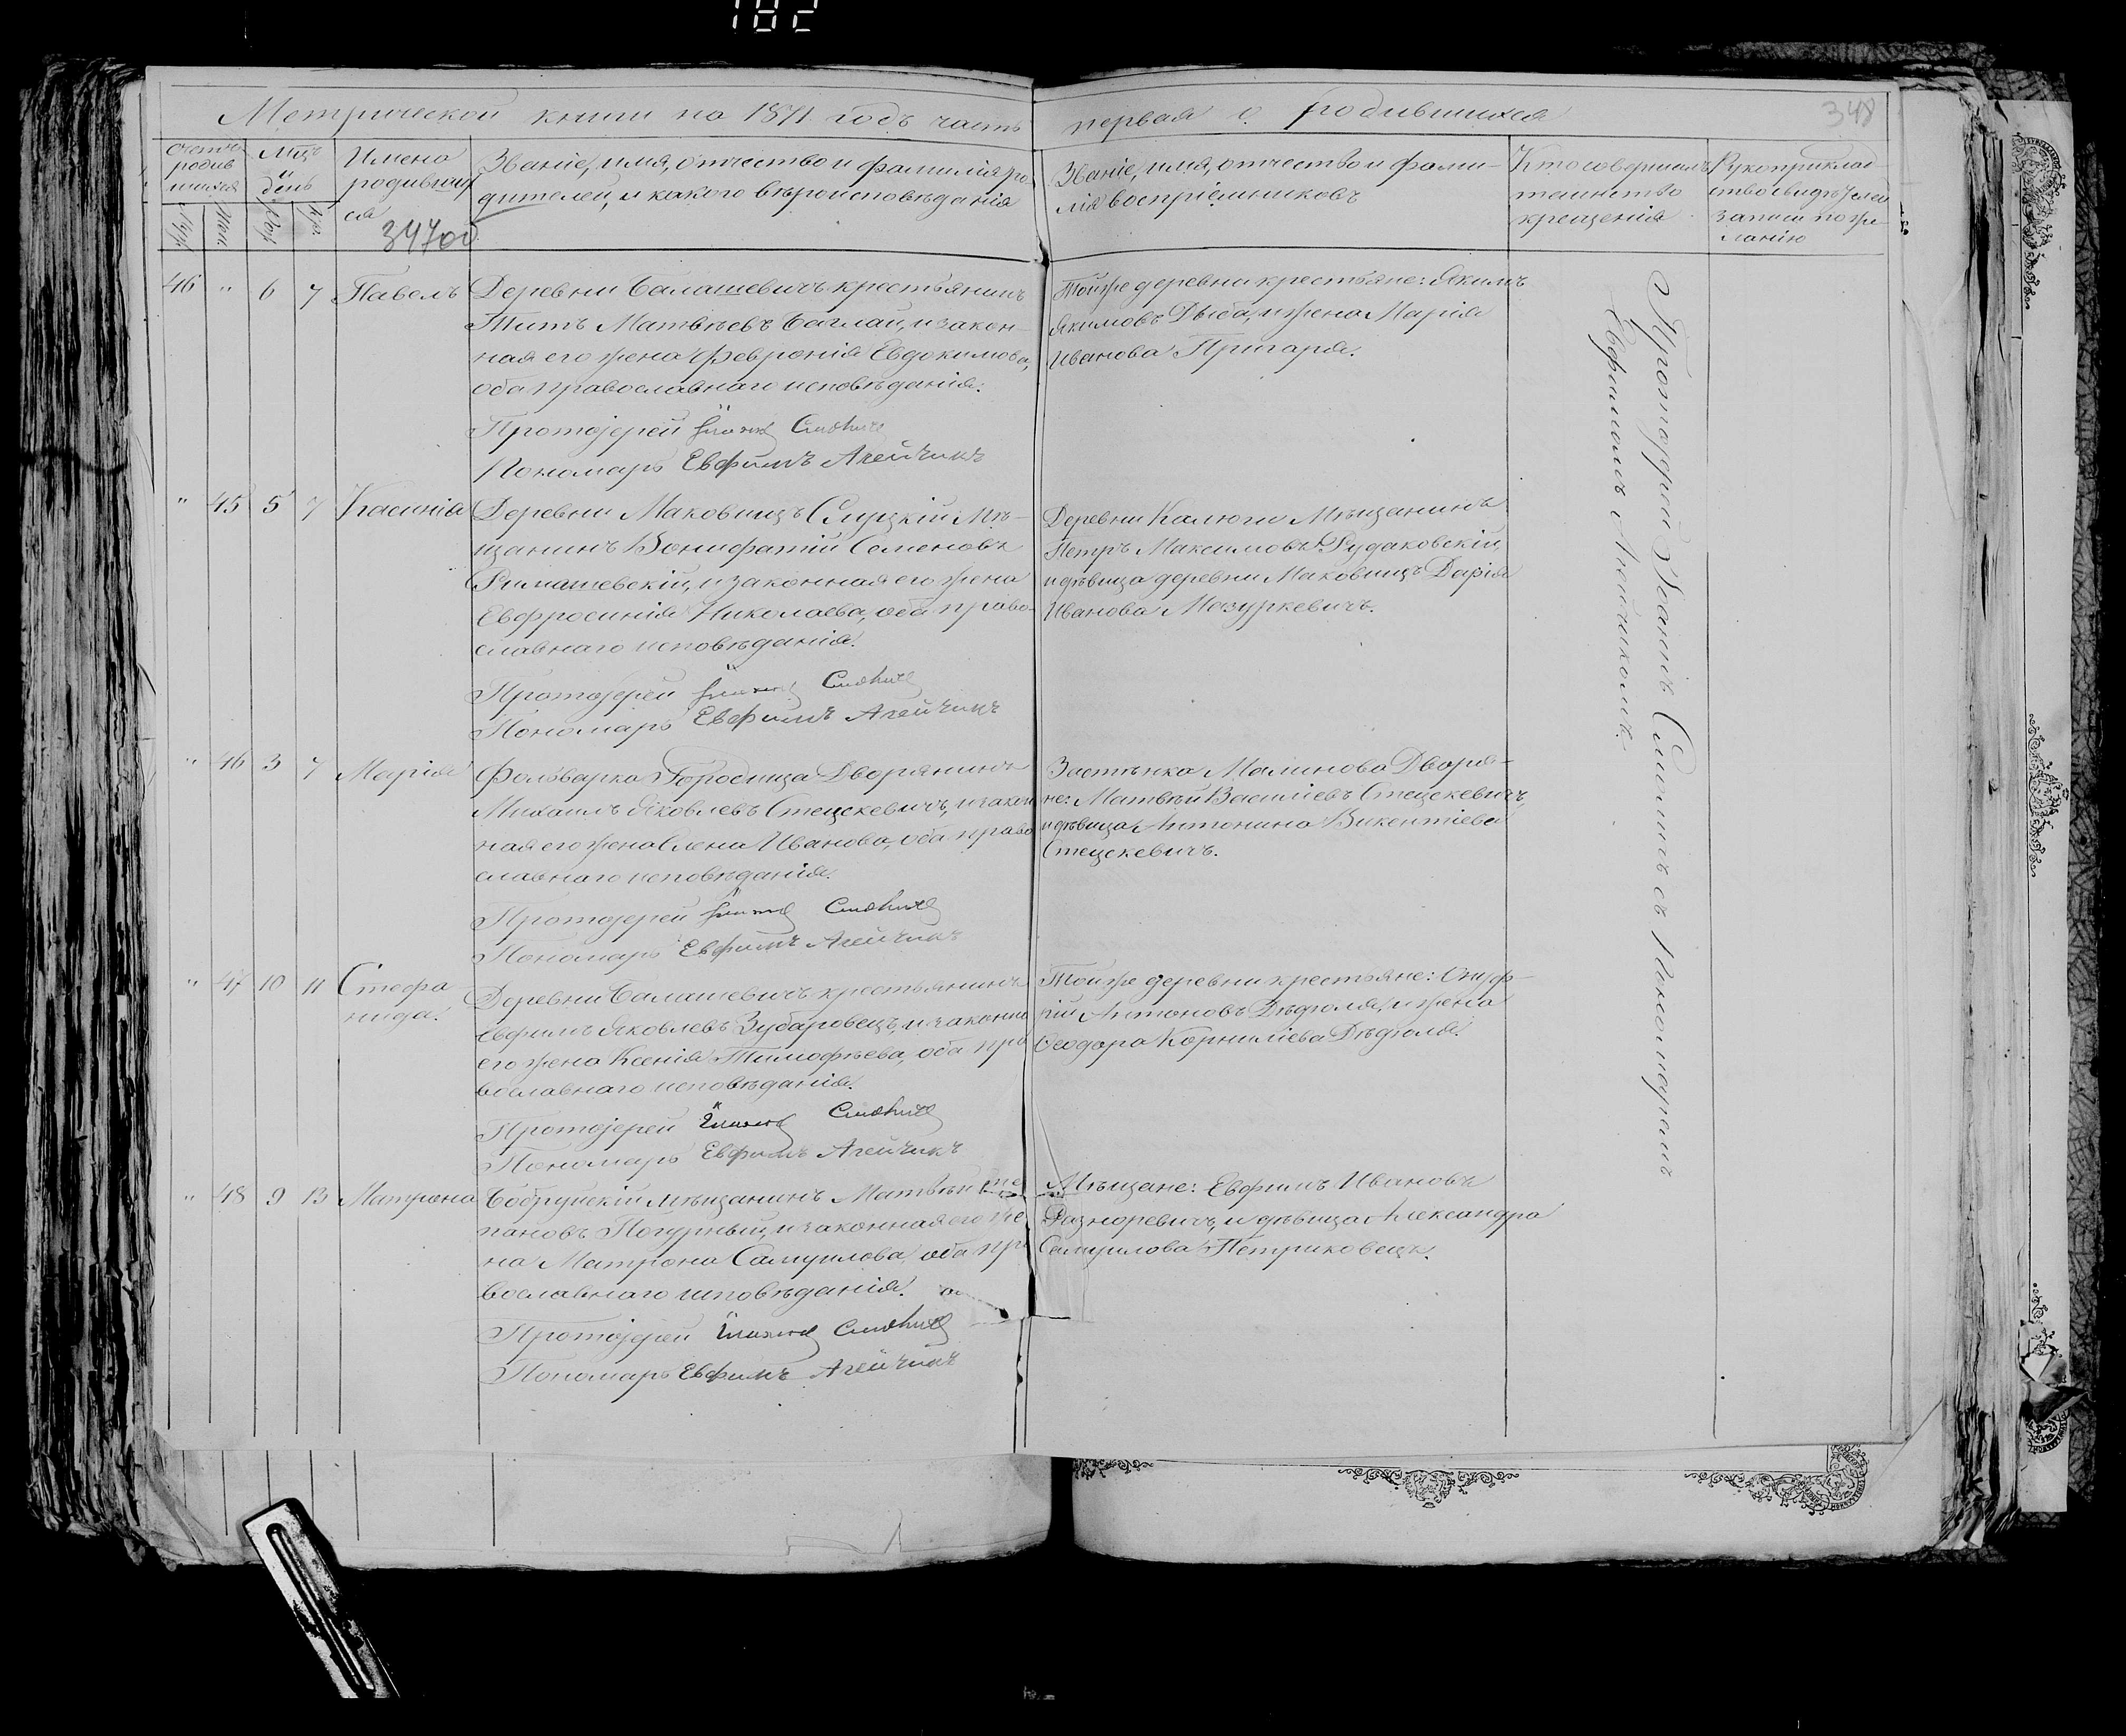 182
Метрической книги на 1871 годъ часть первая о родившихся
348
Счетъ родив
шихся
Мцъ
и
день
Имена
родивших
ся
347об
Званіе, имя, отчество и фамилія ро
дителей, и какого вѣроисповѣданія
Званіе, имя, отчество и фами-
лія воспріемниковъ
Кто совершалъ
таинство
крещенія
Рукоприклад
ство свидѣтелей
записи по же
ланію
Муж. Жен. Рож. Кр.
46 " 6 7 Павелъ
Деревни Балашевичъ крестьянинъ
Титъ Матвѣевъ Баглай, и закон-
ная его жена Февронія Евдокимова,
оба православнаго исповѣданія.
Протоіерей Іоаннъ Смоличъ
Пономарь Евфимъ Агейчикъ
Тойже деревни крестьяне: Якимъ
Якимовъ Дыба, и жена Марія
Иванова Пригаря.
" 45 5 7 Ксенія
Деревни Маковищъ Слуцкій Мѣ-
щанинъ Вонифатій Семеновъ
Римашевскій, и законная его жена
Евфросинія Николаева, оба право-
славнаго исповѣданія.
Протоіерей Іоаннъ Смоличъ
Пономарь Евфимъ Агейчикъ
Деревни Калюги Мѣщанинъ
Петръ Максимовъ Рудаковскій,
и дѣвица деревни Маковищъ Дарія
Иванова Мазуркевичъ.
" 46 3 7 Марія
Фольварка Городища Дворянинъ
Михаилъ Яковлевъ Стецкевичъ, и закон
ная его жена Елена Иванова, оба право
славнаго исповѣданія.
Протоіерей Іоаннъ Смоличъ
Пономарь Евфимъ Агейчикъ
Застѣнка Малинова Дворя-
не: Матвѣй Василіевъ Стецкевичъ,
и дѣвица Антонина Викентіева
Стецкевичъ.
" 47 10 11 Стефа
нида.
Деревни Балашевичъ крестьянинъ
Евфимъ Яковлевъ Зубаровецъ, и законная
его жена Ксенія Тимофѣева, оба пра
вославнаго исповѣданія.
Протоіерей Іоаннъ Смоличъ
Пономарь Евфимъ Агейчикъ
Тойже деревни крестьяне: Онуф-
рій Антоновъ Дѣдюля, и жена
Ѳеодора Корниліева Дѣдюля.
" 48 9 13 Матрона
Бобруйскій мѣщанинъ Матвѣй Сте
пановъ Погурный, и законная его же
на Матрона Самуилова, оба пра
вославнаго исповѣданія.
Протоіерей Іоаннъ Смоличъ
Пономарь Евфимъ Агейчикъ
Мѣщане: Евфимъ Ивановъ
и дѣвица Александра
Самуилова Петриковецъ.
Протоіерей Іоаннъ Смоличъ съ Пономаремъ
Евфимомъ Агейчикомъ.